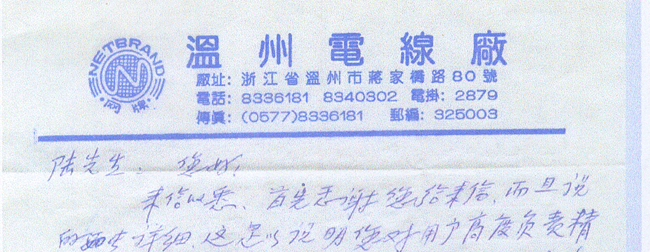 NETBRAND
网牌
溫州電線廠
廠址: 浙江省溫州市蔣家橋路80號
電話: 8336181 8340302 電掛: 2879
傳眞: (0577)8336181 郵編: 325003
陆先生: 您好,
来信收悉、首先感谢您给来信,而且说
的 详细,这足以说明您对用户高度负责精